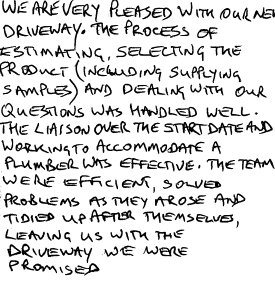 WE ARE VERY PLEASED WITH OUR NE
DRIVEWAY. THE PROCESS OF
ESTIMATING, SELECTING THE
PRODUCT (INCLUDING SUPPLYING
SAMPLES) AND DEALING WITH OUR
QUESTIONS WAS HANDLED WELL.
THE LIAISON OVER THE START DATE AND
WORKING TO ACCOMMODATE A
PLUMBER WAS EFFECTIVE. THE TEAM
WERE EFFICIENT, SOLVED
PROBLEMS AS THEY AROSE AND
TIDIED UP AFTER THEMSELVES,
LEAVING US WITH THE
DRIVEWAY WE WERE
PROMISED